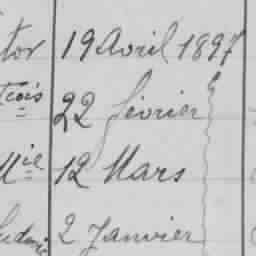 tor 19 Avril 1897
çois 22 février
Mie 12 Mars
2 Janvier